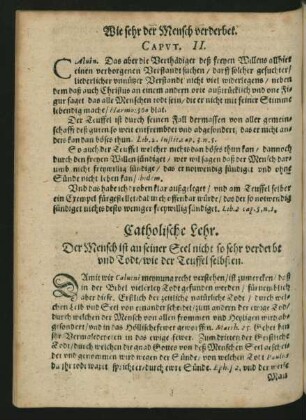 Wie sehr der Mensch verderbet.
CAPVT. II.
Calvin. Das aber die Verthädiger deß freyen Willens allhier
einen verborgenen Verstandt suchen / darff solcher gesuchter /
liederlicher vnnützer Verstandt nicht viel widerlegens / neben
dem daß auch Christus an einem andern orte außtrücklich vnd one Fi-
gur saget das alle Menschen todt sein / die er nicht mit seiner Stimme
lebendig mache / Harmo: blat.
Der Teuffel ist durch seinen Fall dermassen von aller gemein-
schafft deß guten so weit entfrembdet vnd abgesondert / das er nicht an-
ders kan dan böses thun. Lib.2. Institu. cap.3.n.5.
So auch der Teuffel welcher nichts dan böses thun kan / dannoch
durch den freyen Willen sündiget / wer wil sagen daß der Mensch dar-
umb nicht freywillig sündige / das er notwendig sündiget vnd ohne
Sünde nicht leben kan / ibidem.
Vnd das hab ich droben klar außgeleget / vnd am Teuffel selber
ein Exempel fürgestellet / das doch offenbar würde / das der so notwendig
sündiget nichts desto weniger freywillig sündiget. Lib.2 cap.5.n.1.
Catholische Lehr.
Der Mensch ist an seiner Seel nicht so sehr verderbt
vnd Todt / wie der Teuffel selbsten.
DAmit wir Calvini meynung recht verstehen / ist zumercken / daß
in der Bibel vielerley Todt gefunden werden / fürnemblich
aber diese, Erstlich der zeitliche natürliche Todt / durch wel-
chen Leib vnd Seel von einander scheidet / zum andern der ewige Todt
durch welchen der Mensch von allen frommen vnd Heyligen wirdt ab-
gesondert / vnd in das Höllisch Fewer geworffen. Matth. 25. Gehet hin
ihr Vermaledeyten in das ewige fewer. Zum dritten der Geistliche
Todt / durch welchen die gnad Gottes von deß Menschen Seel abschei-
det vnd genommen wird wegen der Sünde / von welchen Todt Paulus
da ihr todt waret spricht er / durch ewre Sünde. Eph. 2. vnd der weise
Man